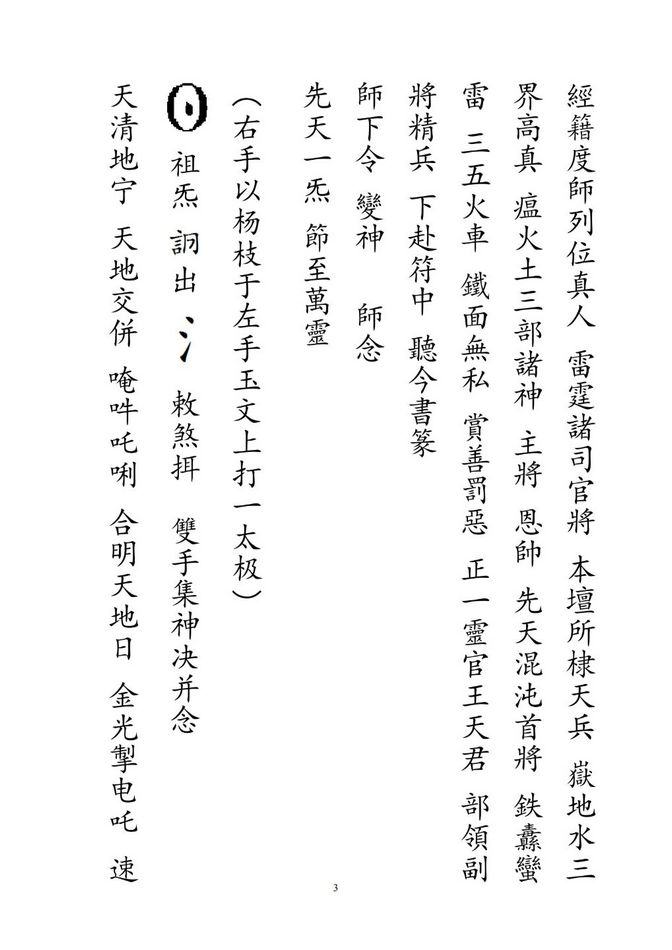 經籍度師列位真人 雷霆諸司官將 本壇所棣天兵 嶽地水三
界高真 瘟火土三部諸神 主將 恩帥 先天混沌首將 鉄纛蠻
雷 三五火車 鐵面無私 賞善罰惡 正一靈官王天君 部領副
將精兵 下赴符中 聽今書篆
師下令 變神 師念
先天一炁 節至萬靈
（右手以杨枝于左手玉文上打一太极）
祖炁 詗出 敕煞挕 雙手集神决并念
天清地宁 天地交併 唵吽吒唎 合明天地日 金光掣电吒 速
3